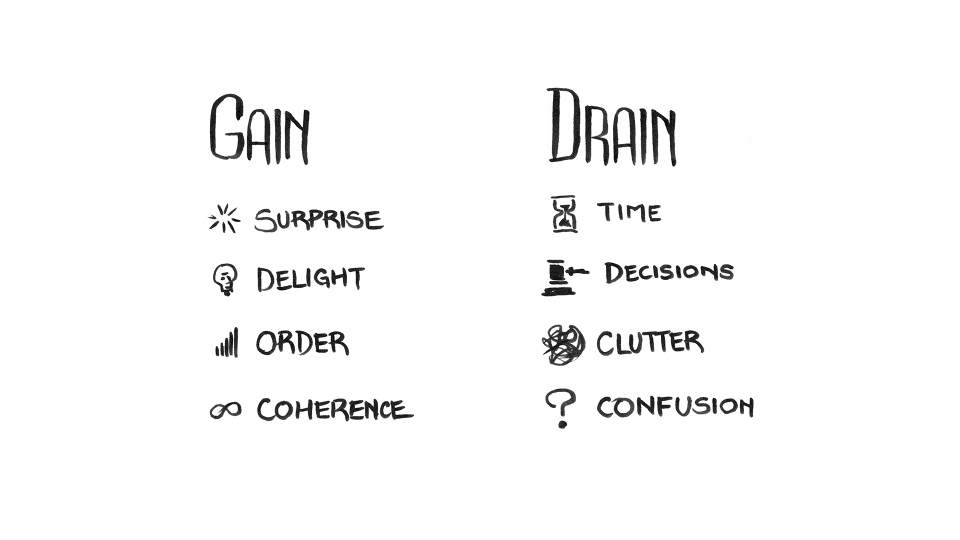 GAIN
SURPRISE
DELIGHT
ORDER
COHERENCE
DRAIN
TIME
DECISIONS
CLUTTER
CONFUSION